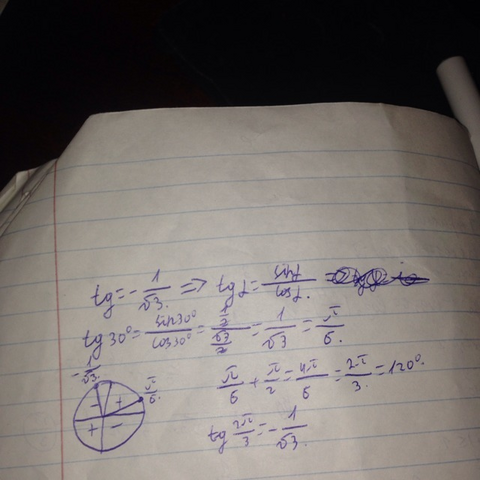 tg = - 1/√3. => tg α = sin α / cos α. =
tg 30° = sin 30° / cos 30° = (1/2) / (√3/2) = 1/√3 = π/6.
- 1/√3.
π/6 + π/2 = 4π/6 = 2π/3 = 120°.
π/6.
- +
+ -
tg 2π/3 = - 1/√3.